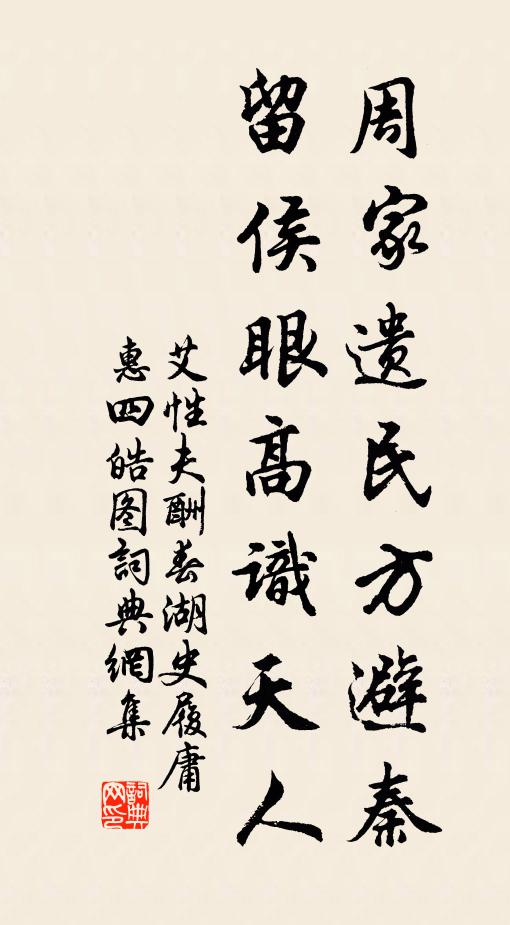 周家遗民方避秦
留侯眼高識天人
艾性夫酬春湖史履庸
惠四皓图詞典網集
詞典网印